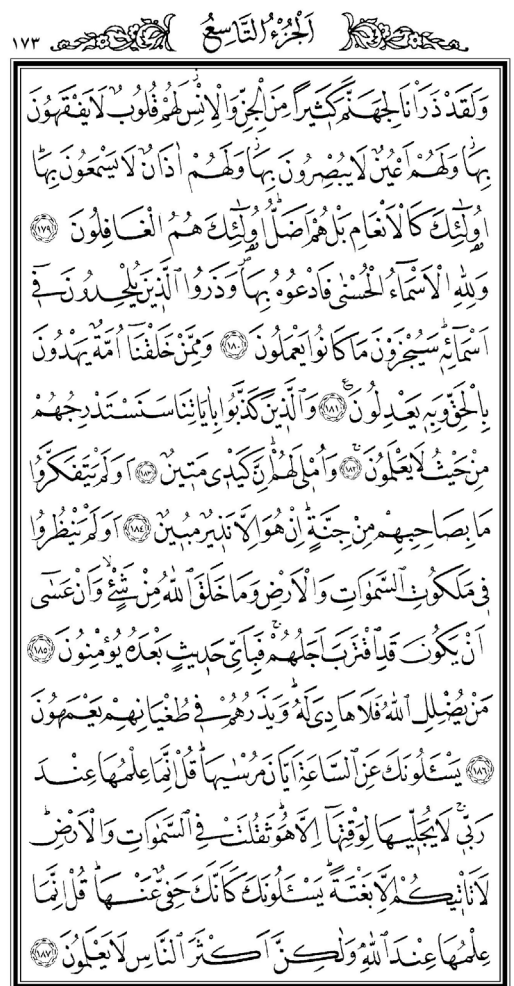 اَلْجُزْءُ التَّاسِعُ ١٧٣
وَلَقَدْ ذَرَأْنَا لِجَهَنَّمَ كَثِيراً مِنَ الْجِنِّ وَالْاِنْسِ لَهُمْ قُلُوبٌ لَا يَفْقَهُونَ
بِهَا وَلَهُمْ اَعْيُنٌ لَا يُبْصِرُونَ بِهَا وَلَهُمْ اٰذَانٌ لَا يَسْمَعُونَ بِهَا
اُو۬لٰٓئِكَ كَالْاَنْعَامِ بَلْ هُمْ اَضَلُّ اُو۬لٰٓئِكَ هُمُ الْغَافِلُونَ ﴿١٧٩﴾
وَلِلّٰهِ الْاَسْمَٓاءُ الْحُسْنٰى فَادْعُوهُ بِهَا وَذَرُوا الَّذِينَ يُلْحِدُونَ فٓي
اَسْمَٓائِه۪ سَيُجْزَوْنَ مَا كَانُوا يَعْمَلُونَ ﴿١٨٠﴾ وَمِمَّنْ خَلَقْنَٓا اُمَّةٌ يَهْدُونَ
بِالْحَقِّ وَبِه۪ يَعْدِلُونَ ﴿١٨١﴾ وَالَّذِينَ كَذَّبُوا بِاٰيَاتِنَا سَنَسْتَدْرِجُهُمْ
مِنْ حَيْثُ لَا يَعْلَمُونَ ﴿١٨٢﴾ وَاُمْلِي لَهُمْ اِنَّ كَيْدِي مَتِينٌ ﴿١٨٣﴾ اَوَلَمْ يَتَفَكَّرُوا
مَا بِصَاحِبِهِمْ مِنْ جِنَّةٍ اِنْ هُوَ اِلَّا نَذِيرٌ مُبِينٌ ﴿١٨٤﴾ اَوَلَمْ يَنْظُرُوا
فِي مَلَكُوتِ السَّمٰوَاتِ وَالْاَرْضِ وَمَا خَلَقَ اللّٰهُ مِنْ شَيْءٍ وَاَنْ عَسٰٓى
اَنْ يَكُونَ قَدِ اقْتَرَبَ اَجَلُهُمْ فَبِاَيِّ حَدِيثٍ بَعْدَهُ يُؤْمِنُونَ ﴿١٨٥﴾
مَنْ يُضْلِلِ اللّٰهُ فَلَا هَادِيَ لَهُ وَيَذَرُهُمْ فِي طُغْيَانِهِمْ يَعْمَهُونَ
﴿١٨٦﴾ يَسْـَٔلُونَكَ عَنِ السَّاعَةِ اَيَّانَ مُرْسٰيهَا قُلْ اِنَّمَا عِلْمُهَا عِنْدَ
رَبِّي لَا يُجَلِّيهَا لِوَقْتِهَٓا اِلَّا هُوَ ثَقُلَتْ فِي السَّمٰوَاتِ وَالْاَرْضِ
لَا تَأْتِيكُمْ اِلَّا بَغْتَةً يَسْـَٔلُونَكَ كَاَنَّكَ حَفِيٌّ عَنْهَا قُلْ اِنَّمَا
عِلْمُهَا عِنْدَ اللّٰهِ وَلٰكِنَّ اَكْثَرَ النَّاسِ لَا يَعْلَمُونَ ﴿١٨٧﴾